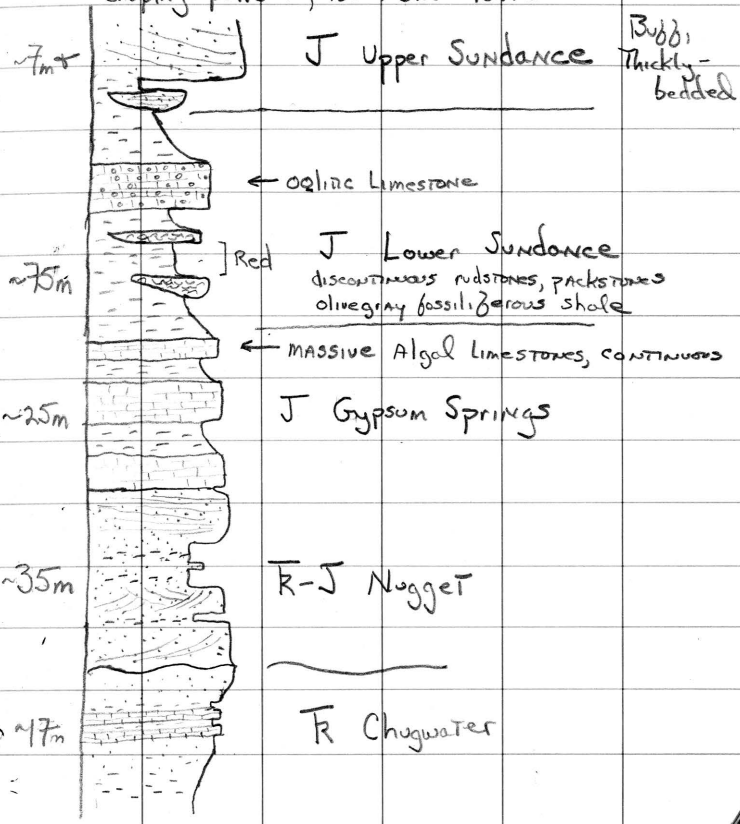 ~7m
J Upper Sundance
Thickly-
bedded
← oolitic Limestone
J Lower Sundance
Red
~75m
discontinuous rudstones, packstones
olivegray fossiliferous shale
← Massive Algal Limestones, continuous
~25m
J Gypsum Springs
~35m
Ŧk-J Nugget
~47m
Ŧk Chugwater